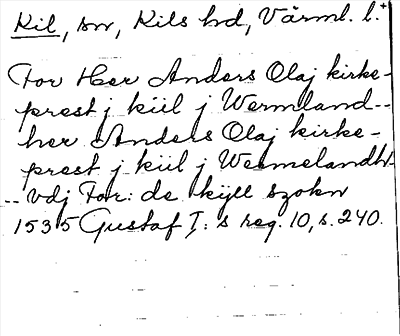 Kil, sn, Kils hd, Värml. l.+
For Her Anders Olaj kirke-
prest j kiil j Wermland--
her Anders Olaj kirke-
prest j kiil j Wermelandh-
-- vdj For: de kijll szokn
1535 Gustaf I: s reg. 10, s. 240.